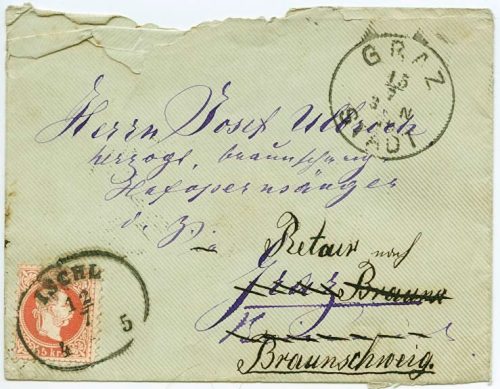 GRAZ
15
7
STADT
Herrn Josef Ulbrich
herzogl. braunschweig
Hofopernsänger
d. Z.
Retour nach
Graz Brauns
Braunschweig.
ISCHL
12
7
4
5
5 kr.